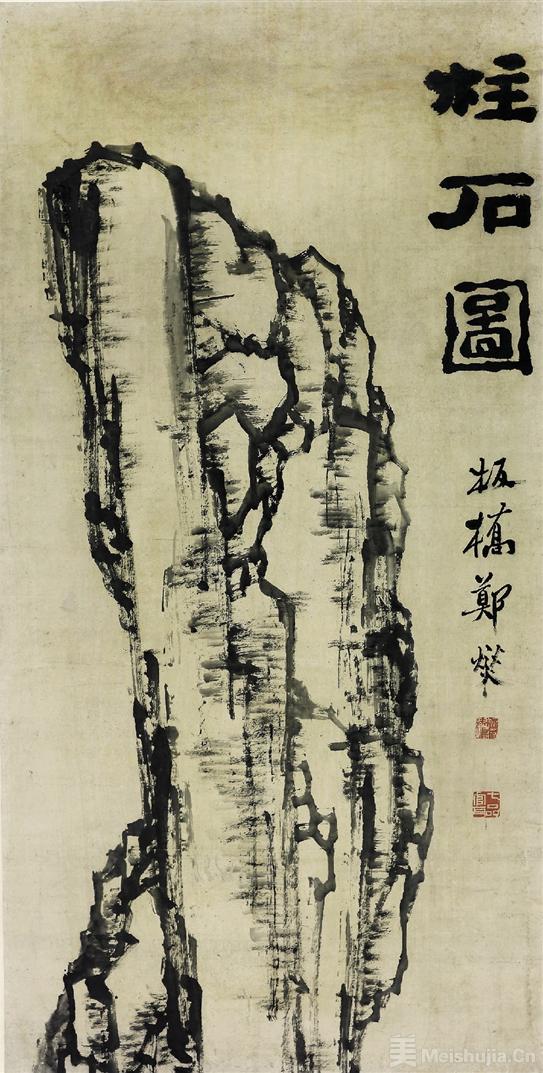 柱石圖
板橋鄭燮
七品官耳
美 Meishujia.Cn